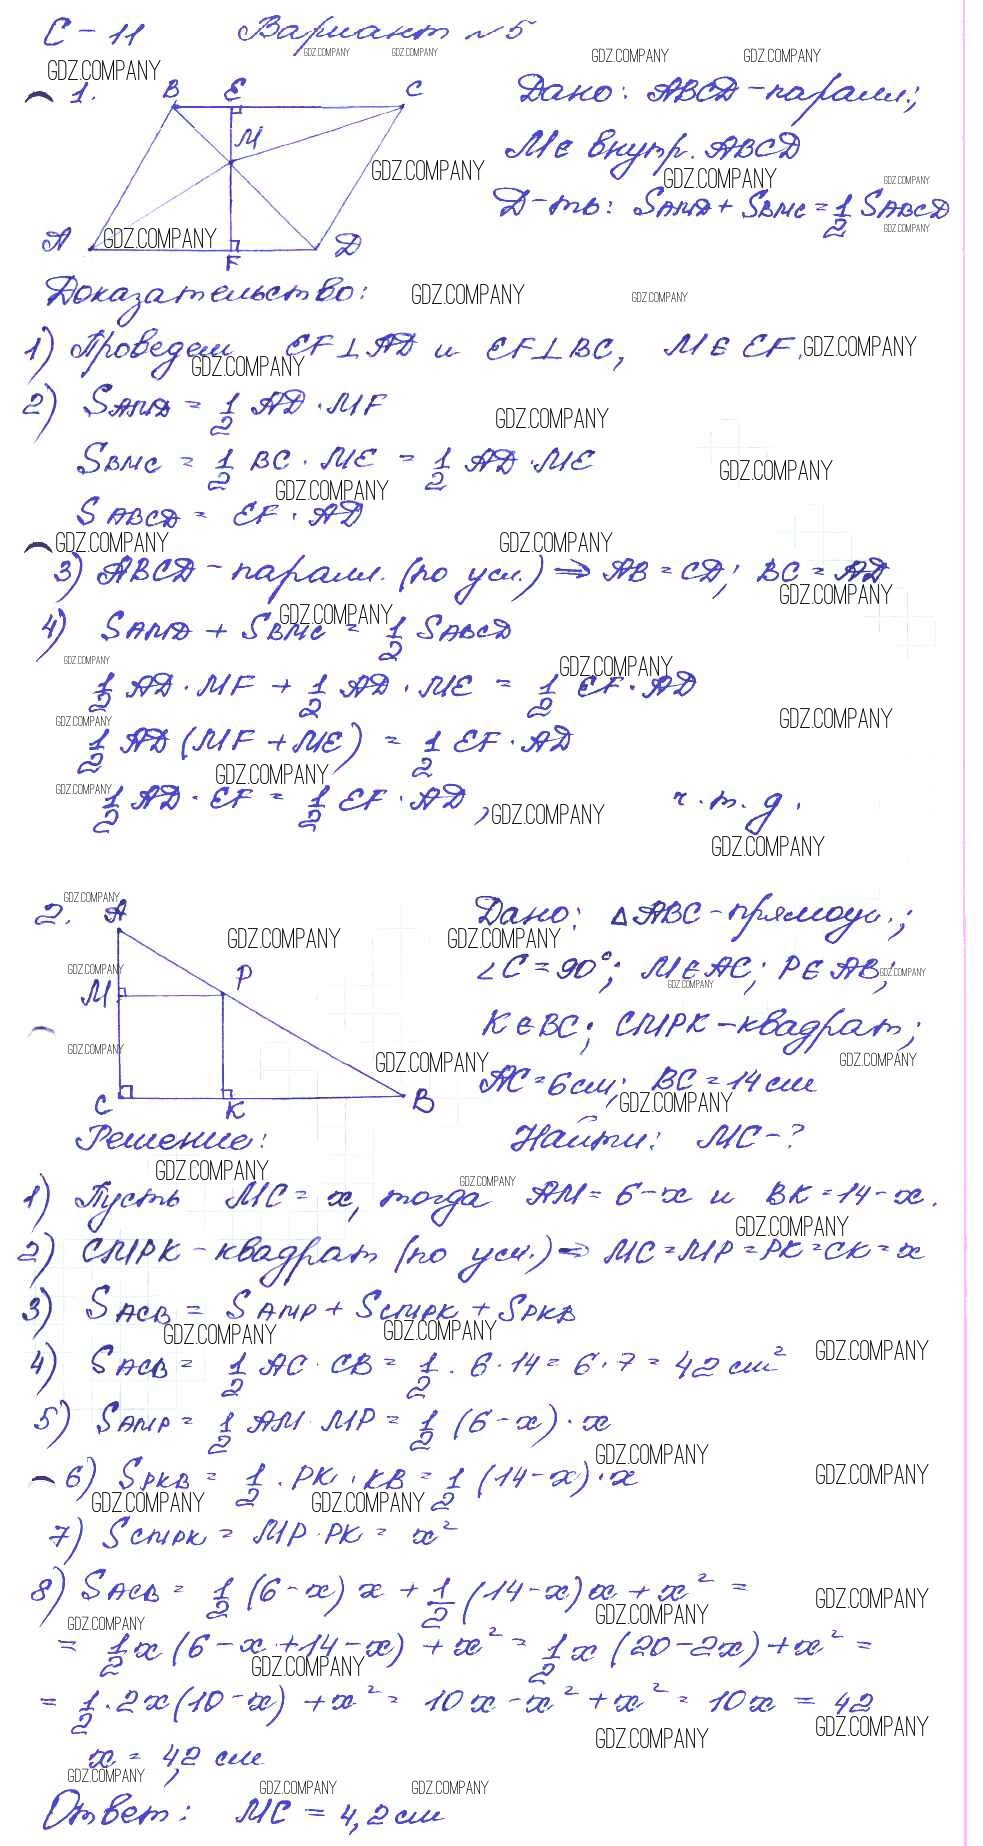 С-11 Вариант №5
1. B E C Дано: ABCD-паралл.;
M
M∈ внутр. ABCD
Д-ть: SAMD + SBMC = 1/2 SABCD
A F D
Доказательство:
1) Проведем EF⊥AD и EF⊥BC, M∈EF.
2) SAMD = 1/2 AD·MF
SBMC = 1/2 BC·ME = 1/2 AD·ME
SABCD = EF·AD
3) ABCD-паралл. (по усл.) ⇒ AB=CD; BC=AD
4) SAMD + SBMC = 1/2 SABCD
1/2 AD·MF + 1/2 AD·ME = 1/2 EF·AD
1/2 AD(MF+ME) = 1/2 EF·AD
1/2 AD·EF = 1/2 EF·AD, ч.т.д.
2. A Дано: ΔABC-прямоуг.;
M P ∠C=90°; M∈AC; P∈AB;
K∈BC; CMPK-квадрат;
AC=6см; BC=14см
C K B
Решение: Найти: MC-?
1) Пусть MC=x, тогда AM=6-x и BK=14-x.
2) CMPK-квадрат (по усл.) ⇒ MC=MP=PK=CK=x
3) SACB = SAMP + SCMPK + SPKB
4) SACB = 1/2 AC·CB = 1/2·6·14 = 6·7 = 42 см²
5) SAMP = 1/2 AM·MP = 1/2 (6-x)·x
6) SPKB = 1/2·PK·KB = 1/2 (14-x)·x
7) SCMPK = MP·PK = x²
8) SACB = 1/2 (6-x)x + 1/2 (14-x)x + x² =
= 1/2 x(6-x+14-x) + x² = 1/2 x(20-2x) + x² =
= 1/2·2x(10-x) + x² = 10x-x²+x² = 10x = 42
x = 4,2 см
Ответ: MC = 4,2см
GDZ.COMPANY